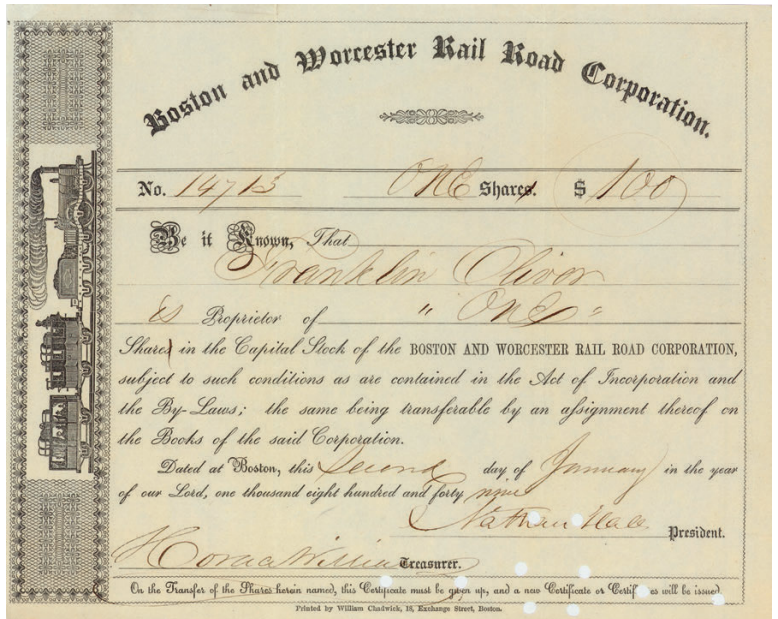 Boston and Worcester Rail Road Corporation.
No. 14713 ONE Shares. $ 100
Be it Known, That
Franklin Oliver
is Proprietor of " One "
Shares in the Capital Stock of the BOSTON AND WORCESTER RAIL ROAD CORPORATION,
subject to such conditions as are contained in the Act of Incorporation and
the By-Laws; the same being transferable by an assignment thereof on
the Books of the said Corporation.
Dated at Boston, this Second day of January in the year
of our Lord, one thousand eight hundred and forty nine
Nathan Hale President.
Horace Williams Treasurer.
On the Transfer of the Shares herein named, this Certificate must be given up, and a new Certificate or Certificates will be issued.
Printed by William Chadwick, 18, Exchange Street, Boston.